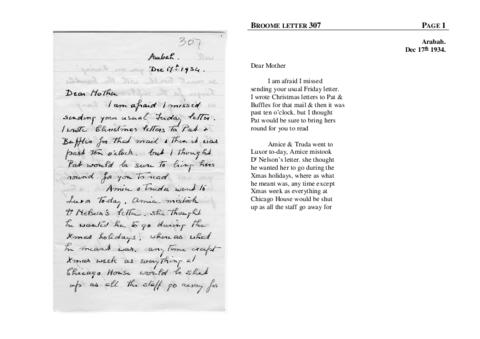 307
Arabah.
Dec 17th 1934.
Dear Mother
I am afraid I missed
sending your usual Friday letter.
I wrote Christmas letters to Pat &
Buffles for that mail & then it was
past ten o'clock. but I thought
Pat would be sure to bring hers
round for you to read
Amice & Truda went to
Luxor today, Amice mistook
Dr Nelson's letter. she thought
he wanted her to go during the
Xmas holidays, where as what
he meant was, any time except
Xmas week as everything at
Chicago House would be shut
up as all the staff go away for
BROOME LETTER 307
PAGE 1
Arabah.
Dec 17th 1934.
Dear Mother
I am afraid I missed
sending your usual Friday letter.
I wrote Christmas letters to Pat &
Buffles for that mail & then it was
past ten o'clock, but I thought
Pat would be sure to bring hers
round for you to read
Amice & Truda went to
Luxor to-day, Amice mistook
Dr Nelson's letter. she thought
he wanted her to go during the
Xmas holidays, where as what
he meant was, any time except
Xmas week as everything at
Chicago House would be shut
up as all the staff go away for